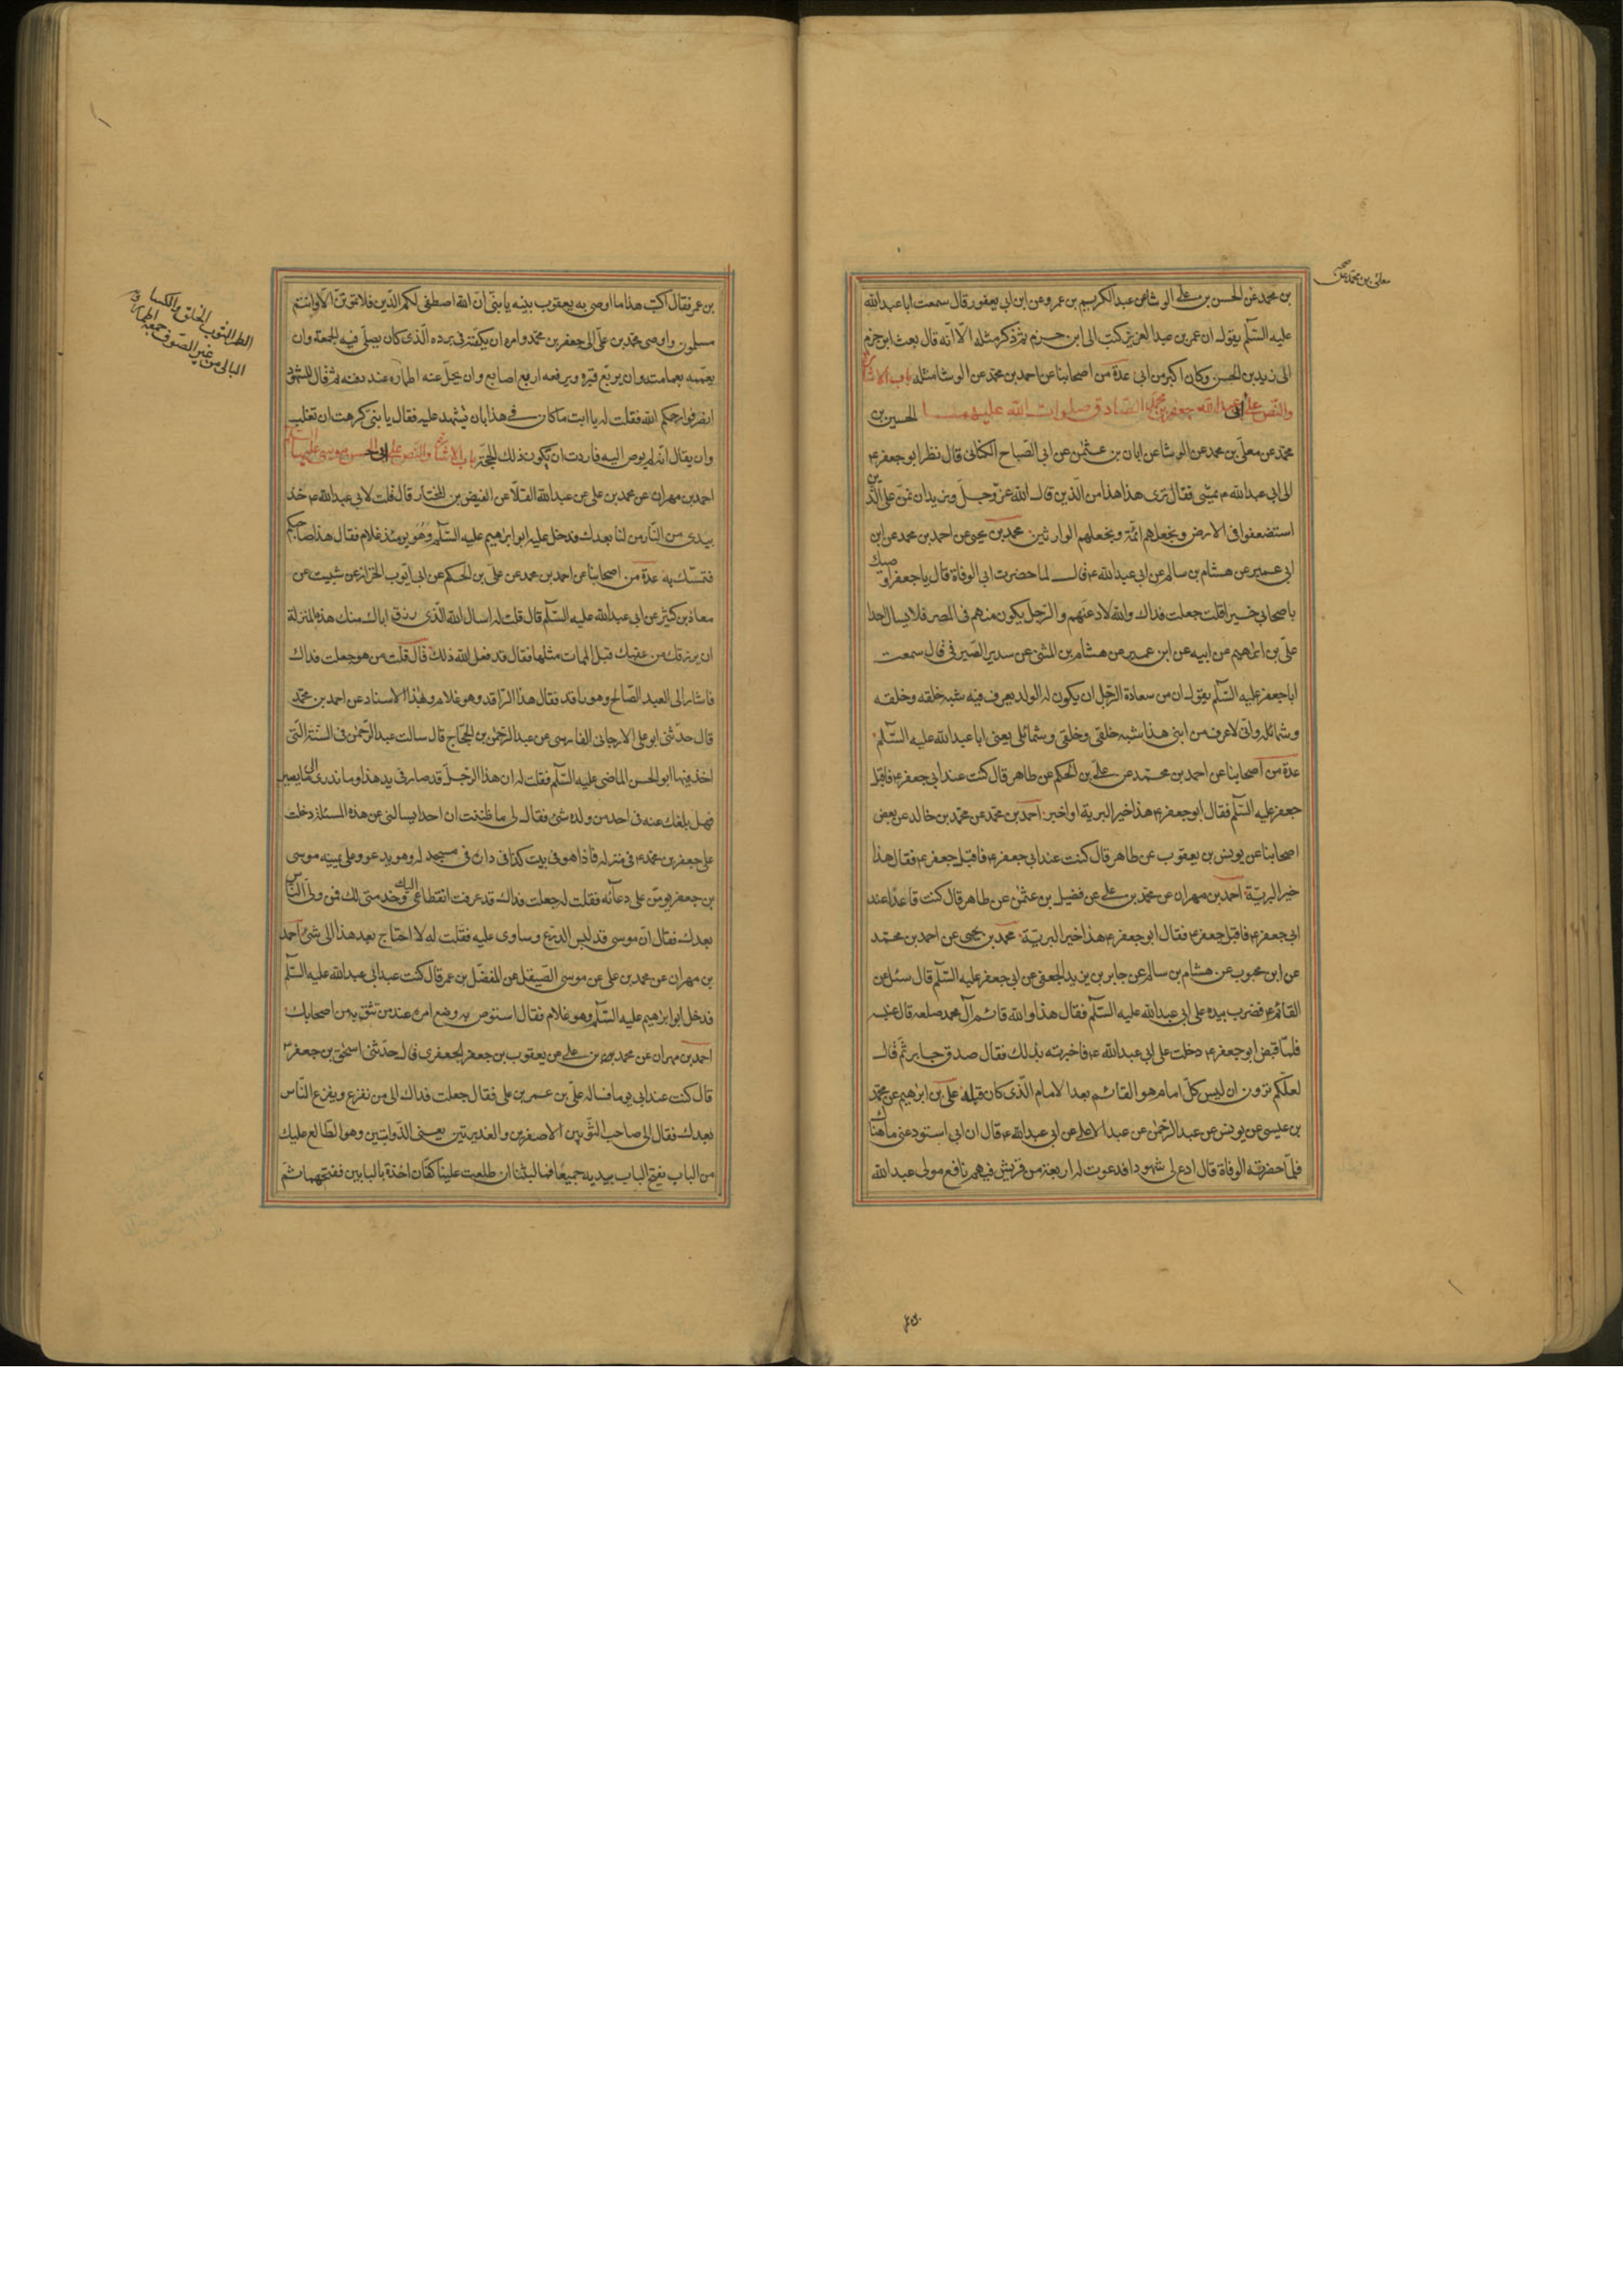 معلى بن محمد عن صح
بن محمد عن الحسن بن علي الوشا عن عبد الكريم بن عمرو عن ابن ابى يعفور قال سمعت ابا عبد الله
عليه السلم يقول ان عمر بن عبد العزيز كتب الى ابن حزم ثم ذكر مثله الّا انه قال بعث ابن حزم
الى زيد بن الحسن وكان اكبر من ابى عدة من اصحابنا عن احمد بن محمد عن الوشا مثله باب الاشارة
والنص على ابى عبد الله جعفر بن محمد الصادق صلوات الله عليهما الحسين بن
محمد عن معلّى بن محمد عن الوشا عن ابان بن عثمن عن ابى الصباح الكنانى قال نظر ابو جعفر ع
الى ابى عبد الله ع يمشى فقال ترى هذا هذا من الذين قال الله عز وجلّ ونريد ان نمنّ على الذين
استضعفوا فى الارض ونجعلهم ائمّة ونجعلهم الوارثين محمد بن يحيى عن احمد بن محمد عن ابن
ابى عمير عن هشام بن سالم عن ابى عبد الله ع قال لما حضرت ابى الوفاة قال يا جعفر اوصيك
باصحابى خيرا قلت جعلت فداك والله لادعنهم والرجل يكون منهم فى المصر فلا يسال احدا
علّى بن ابراهيم عن ابيه عن ابن عمير عن هشام بن المثنى عن سدير الصيرفى قال سمعت
ابا جعفر عليه السّلم يقول ان من سعادة الرجل ان يكون له الولد يعرف فيه شبه خلقه وخلقه
وشمائله وانّى لاعرف من ابنى هذا شبه خلقى وخلقى وشمائلى يعنى ابا عبد الله عليه السّلم
عدة من اصحابنا عن احمد بن محمد عن علي بن الحكم عن طاهر قال كنت عند ابى جعفر ع فاقبل
جعفر عليه السّلم فقال ابو جعفر ع هذا خير البرية او اخير احمد بن محمد عن محمد بن خالد عن بعض
اصحابنا عن يونس بن يعقوب عن طاهر قال كنت عند ابى جعفر ع فاقبل جعفر ع فقال هذا
خير البريّة احمد بن مهران عن محمد بن علي عن فضيل بن عثمن عن طاهر قال كنت قاعدًا عند
ابى جعفر ع فاقبل جعفر ع فقال ابو جعفر ع هذا خير البريّة محمد بن يحيى عن احمد بن محمد
عن ابن محبوب عن هشام بن سالم عن جابر بن يزيد الجعفى عن ابى جعفر عليه السّلم قال سئل عن
القائم ع فضرب بيده على ابى عبد الله عليه السّلم فقال هذا والله قائم آل محمد صلعم قال عنبسه
فلمّا قبض ابو جعفر ع دخلت على ابى عبد الله ع فاخبرته بذلك فقال صدق جابر ثمّ قال
لعلّكم ترون ان ليس كلّ امام هو القائم بعد الامام الّذى كان قبله علّى بن ابرهيم عن محمد
بن عيسى عن يونس عن عبد الرحمن عن عبد الاعلى عن ابى عبد الله ع قال ان ابى استودعنى ما هناك
فلمّا حضرته الوفاة قال ادع لى شهودا فدعوت له اربعة من قريش فيهم نافع مولى عبد الله
بن عمر فقال اكتب هذا ما اوصى به يعقوب بنيه يا بنىّ انّ الله اصطفى لكم الدّين فلا تموتنّ الّا وانتم
مسلمون واوصى محمد بن علّى الى جعفر بن محمد وامره ان يكفّنه فى برده الّذى كان يصلّى فيه الجمعة وان
يعمّمه بعمامته وان يربّع قبره ويرفعه اربع اصابع وان يحلّ عنه اطماره عند دفنه ثم قال للشهود
انصرفوا رحمكم الله فقلت له يا ابت ما كان فى هذا بان تشهد عليه فقال يا بنىّ كرهت ان تغلب
وان يقال انّه لم يوص اليه فاردت ان تكون ذلك الحجّة باب الاشارة والنّص على ابى الحسن موسى عليه السلم
احمد بن مهران عن محمد بن على عن عبد الله القلّا عن الفيض بن المختار قال قلت لابى عبد الله ع خذ
بيدى من النّار من لنا بعدك فدخل عليه ابو ابراهيم عليه السّلم وهو يومئذ غلام فقال هذا صاحبكم
فتمسّك به عدة من اصحابنا عن احمد بن محمد عن علّى بن الحكم عن ابى ايّوب الخزاز عن ثبيت عن
معاذ بن كثير عن ابى عبد الله عليه السّلم قال قلت له اسال الله الّذى رزق اباك منك هذه المنزلة
ان يرزقك من عقبك قبل الممات مثلها فقال قد فعل الله ذلك قال قلت من هو جعلت فداك
فاشار الى العبد الصّالح وهو راقد فقال هذا الرّاقد وهو غلام وبهذا الاسناد عن احمد بن محمّد
قال حدّثنى ابو على الارجانى الفارسى عن عبد الرحمن بن الحجّاج قال سالت عبد الرّحمن فى السّنة الّتى
اخذ فيها ابو الحسن الماضى عليه السّلم فقلت له ان هذا الرّجلّ قد صار فى يد هذا وما ندرى الى ما يصير
فهل بلغك عنه فى احد من ولده شىء فقال لى ما ظننت ان احدا يسالنى عن هذه المسئلة دخلت
على جعفر بن محمد ع فى منزله فاذا هو فى بيت كذا فى داره فى مسجد له وهو يدعو وعلى يمينه موسى
بن جعفر يومّن على دعائه فقلت له جعلت فداك قد عرفت انقطاعى اليك وخدمتى لك فمن ولىّ النّاس
بعدك فقال انّ موسى قد لبس الدّرع وساوى عليه فقلت له لا احتاج بعد هذا الى شىء احمد
بن مهران عن محمد بن على عن موسى الصّيقل عن المفضّل بن عمر قال كنت عند ابى عبد الله عليه السّلم
فدخل ابو ابرهيم عليه السّلم وهو غلام فقال استوص به وضع امره عند من تثق به من اصحابك
احمد بن مهران عن محمد بن علي عن يعقوب بن جعفر الجعفرى قال حدّثنى اسحق بن جعفر
قال كنت عند ابى يوما فساله علّى بن عمر بن على فقال جعلت فداك الى من نفزع ويفزع النّاس
بعدك فقال الى صاحب الثّوبين الاصفرين والغديرتين يعنى الذّوابتين وهو الطّالع عليك
من الباب يفتح الباب بيديه جميعًا فما لبثنا ان طلعت علينا كفّان اخذة بالبابين ففتحهما ثمّ
الطمر الثوب الخلق والكساء
البالى من غير الصوف جمعه اطمار